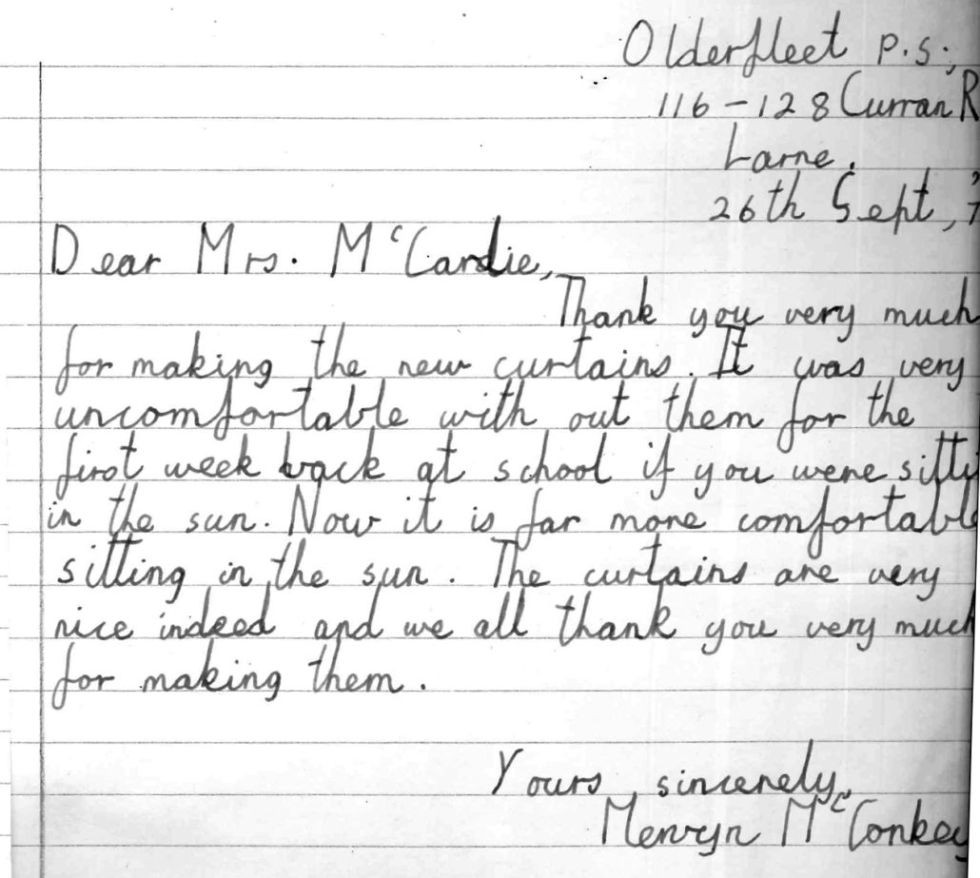 Olderfleet P.S.,
116-128 Curran R
Larne.
26th Sept, '7
Dear Mrs. McCardie,
Thank you very much
for making the new curtains. It was very
uncomfortable with out them for the
first week back at school if you were sitti
in the sun. Now it is far more comfortabl
sitting in the sun. The curtains are very
nice indeed and we all thank you very much
for making them.
Yours sincerely,
Mervyn McConkey